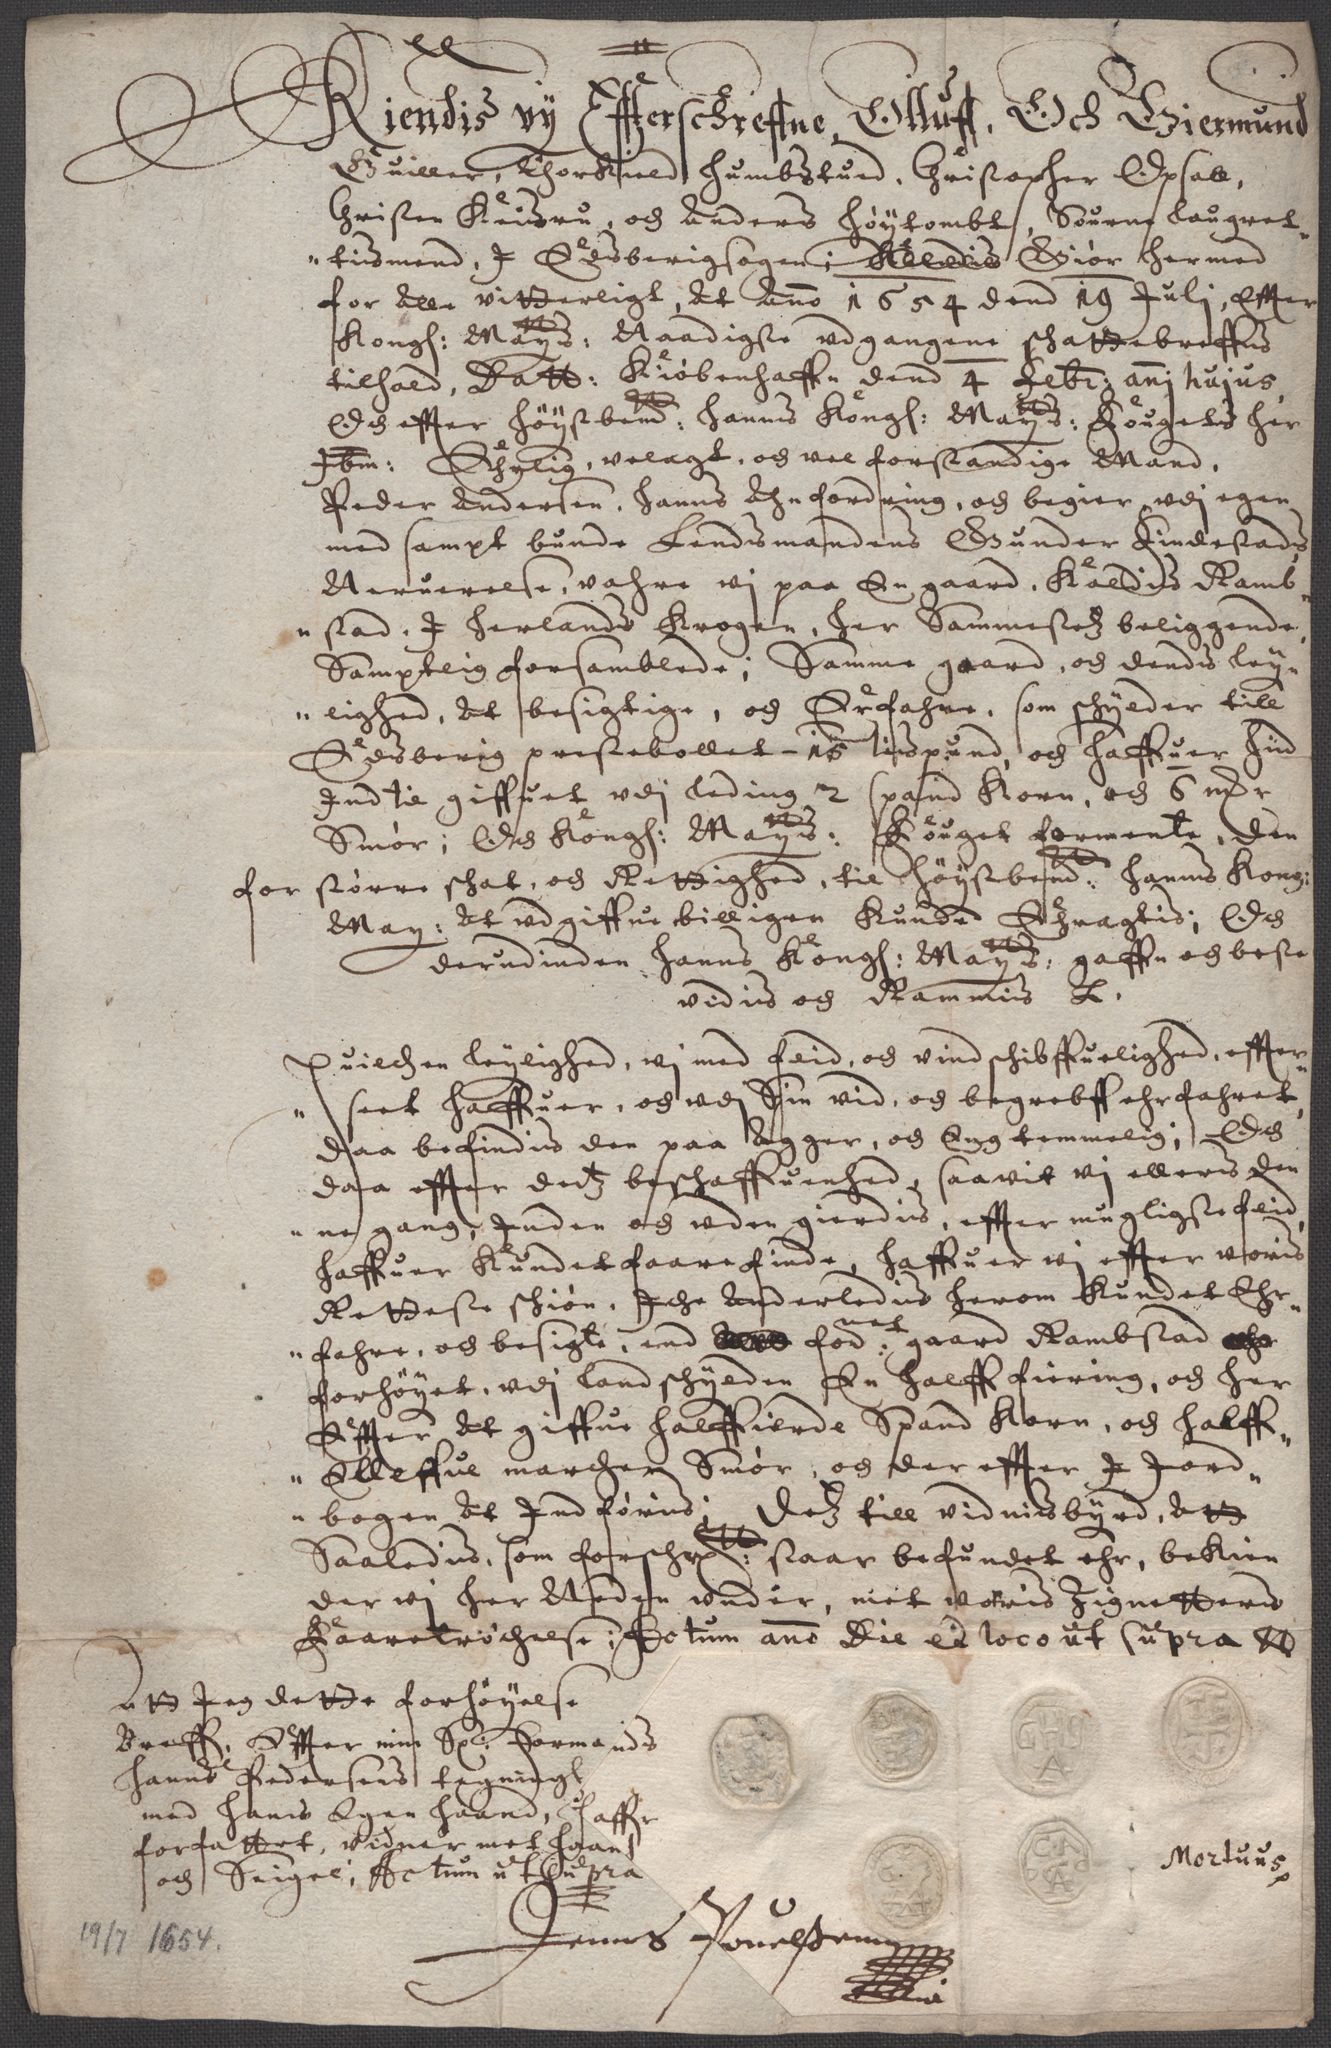 Kiendis vÿ Effterschreffne, Olluff, Och Giermund
Huiller, Thorkield Humbstued, Christopher Opsall,
Christen Kiusru, och Anders Høytombt, Sourne laugret„
„tismend, J Edsbergsogen; Giør hermed
for alle vitterligt, at Anno 1654 dend 19 Julj, Effter
Kongl: Mayts: Naadigste vdgangene schattebreffues
tilhold, Datt: Kiøbenhaffn dend 4 Febr: anj hujus,
Och effter høystbemt: hanns Kongl: Mayts: Fougets her
Jbm: Ehrlig, velagt, och vel forstandige Mand,
Peder Andersen, hanns Anfordring, och begier, vdj egen
med sampt bunde Lendsmandens Gunder Findestads
Neruerelse, vahre vj paa En gaard, Kaldis Ramb„
„stad, J Herlands Krogen, her Sammestedz beliggende,
Samptlig forsamblede; Samme gaard, och dends ley„
„lighed, at besigtige, och Erfahre, som schylder till
Edsberig prestebollet - 15 lispund, och haffuer hid
Indtil giffuet vdj leding 2 spand Korn, och 6 mkr
Smør; Och Kongl: Mayts: Fouget formente, den
for større schat, och Rettighed, til høystbemt: hanns Kong:
May: at vdgiffue billigen kunde Eragtis; Och
derudinden hanns Kongl: Mayts: gaffn och beste
vides och Rammis &.
Huilchen leylighed, vj med flid, och vindschibffuelighed, effter„
„seet haffuer, och vdj Sin vid, och begrebff ehrfahret,
daa befindis den paa Agger, och Eng temmelig; Och
daa effter detz beschaffuenhed, saavit vj ellers den
„ne gang, Inden och uden gierdes, effter mugligste flid,
haffuer Kundet faare finde, haffuer vj effter voris
Retteste schiøn, Iche Anderledis herom kundet Ehr„
„fahre, och besigte, end for: net gaard Rambstad
forhøyet, vdj landschylden En halff fiering, och her
Effter at giffue halffierde Spand Korn, och halff„
„Elleffue marcher Smør, och der effter J Jord„
„bogen at Indføris; Detz till vidnisbyrd, att
Saaledis, som forschr: staar befundet ehr, bekien
der vj her Neden under, met voris Zignetters
Faaretrøchelse; Actum anno die et loco ut supra
Att Jeg dette forhøyelse
Breff, Effter min Sl: Formands
Hanns Pedersens tegning
med hans Egen haand, haffr
forfattet, vidner met haand
och Seigel; Actum ut Supra
Jenns Pouelssenn
GHS
A
Mortuus
19/7 1654.